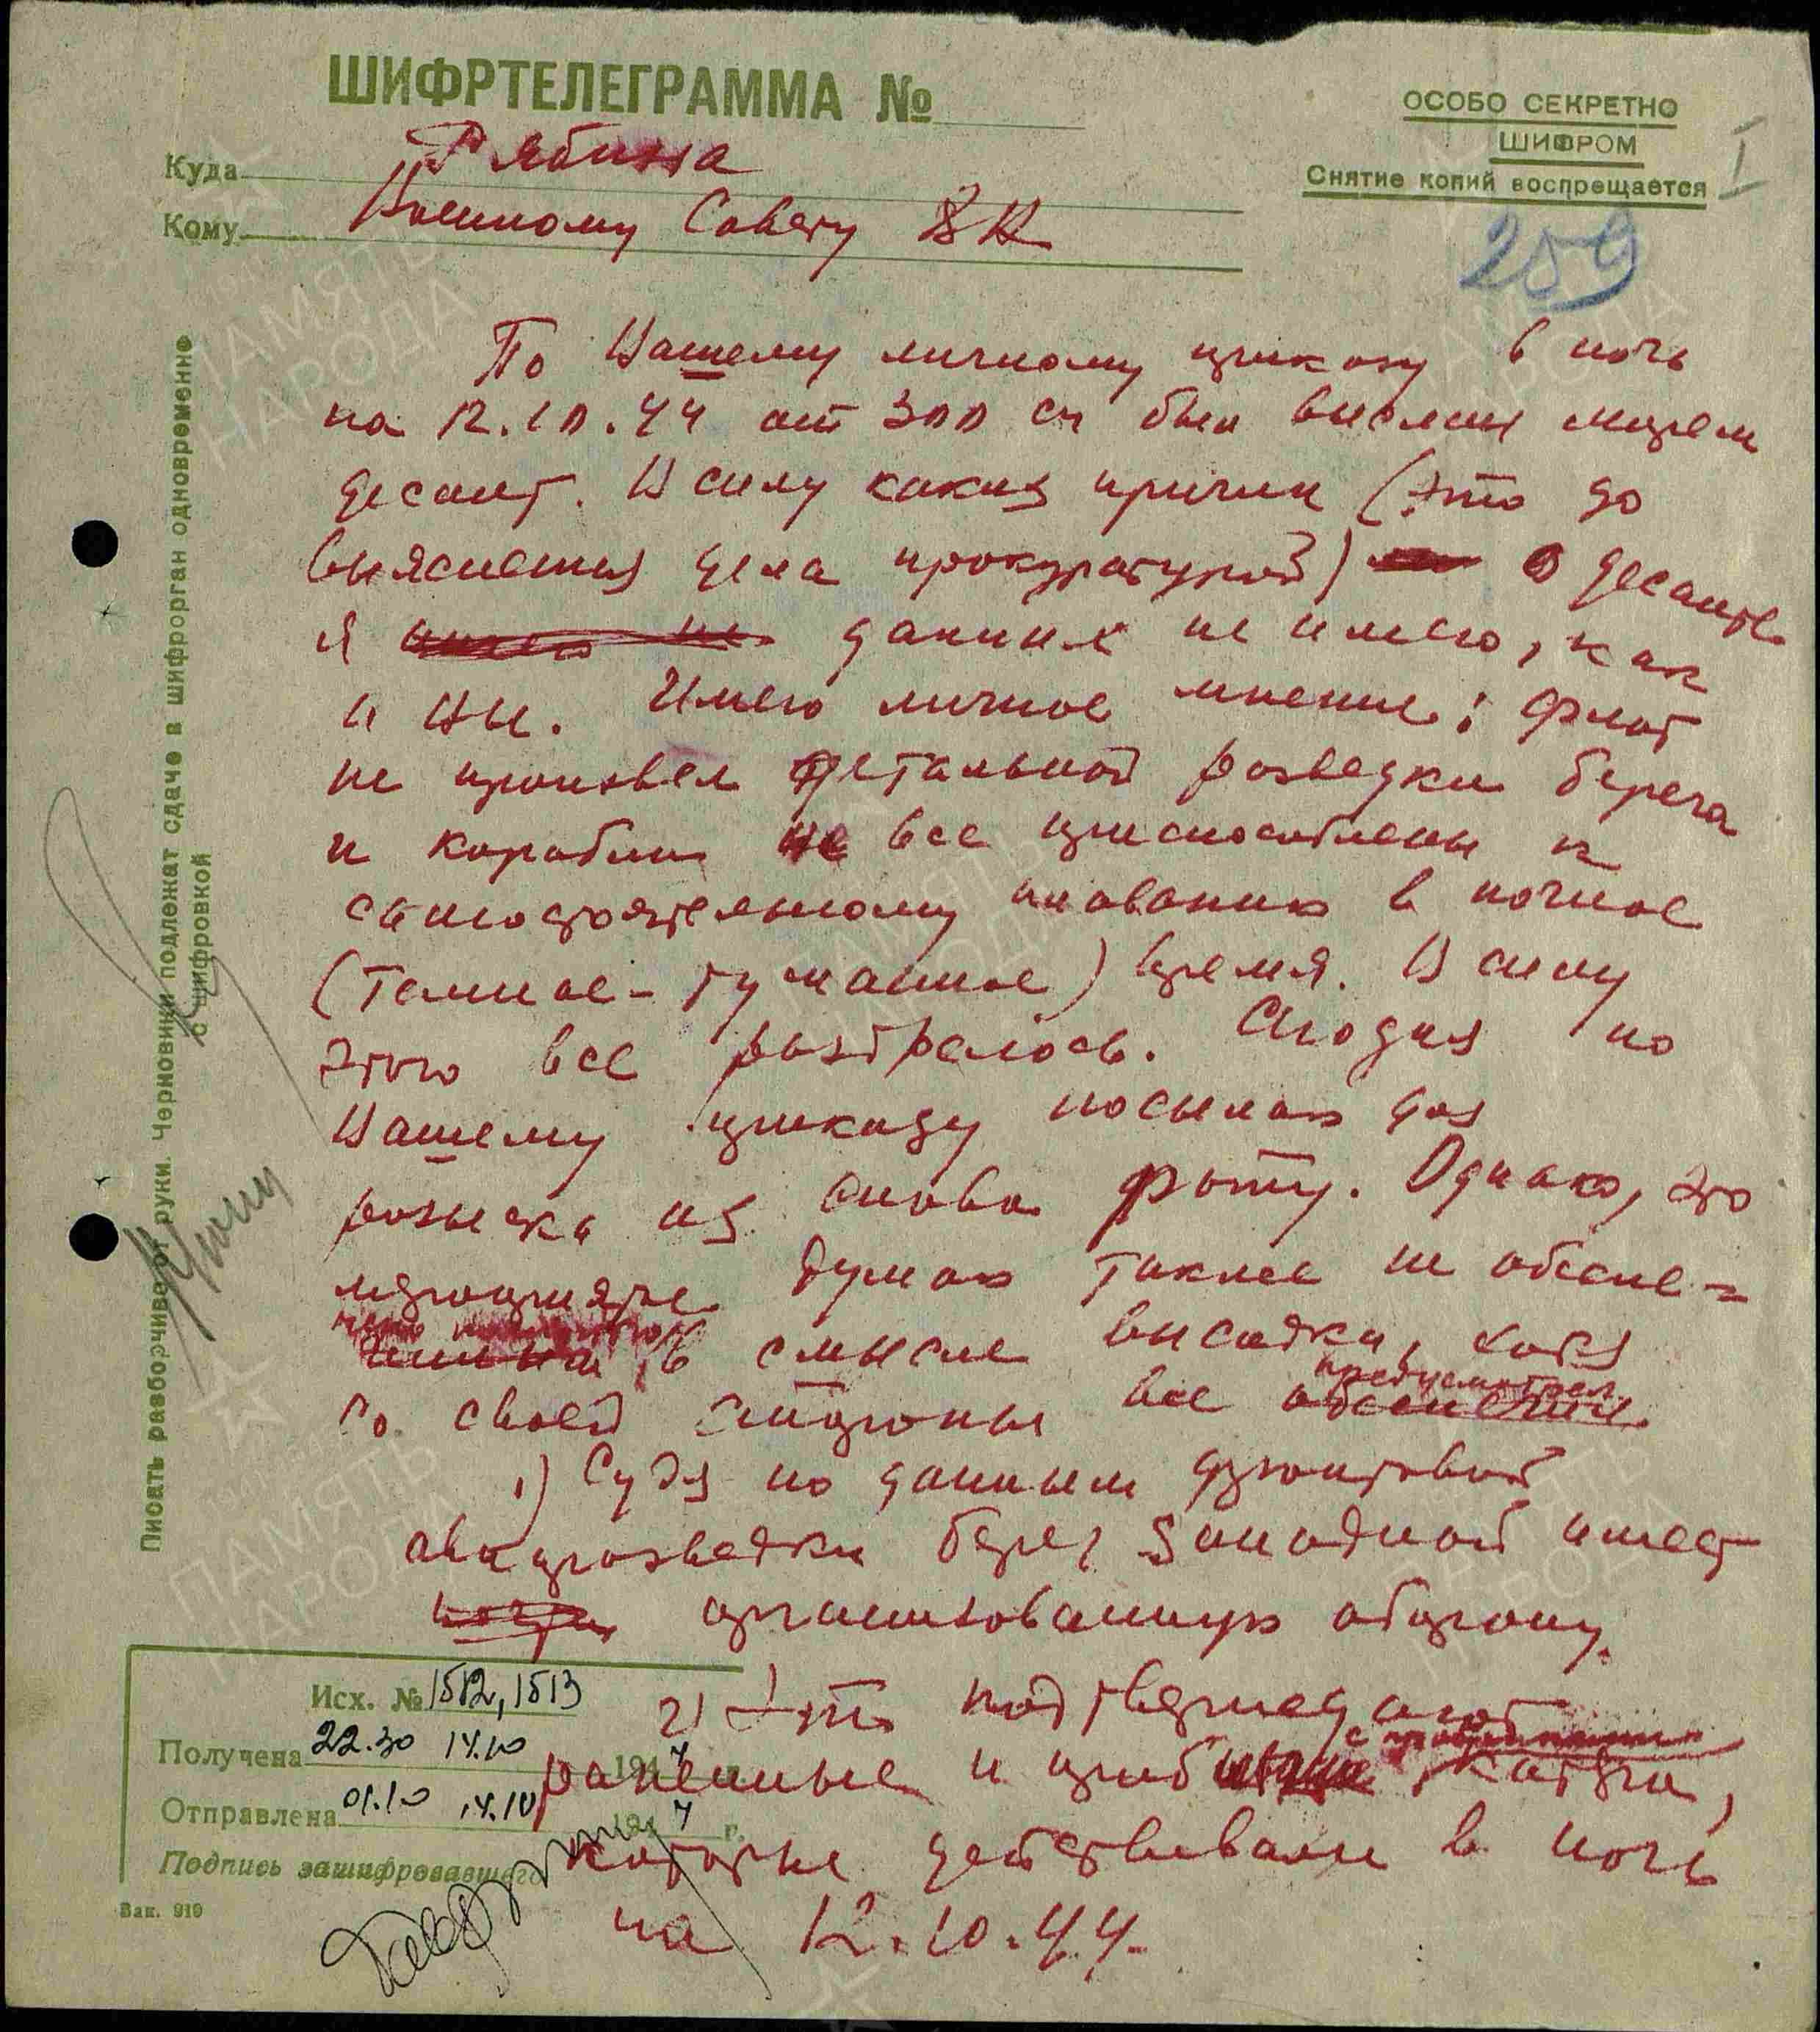 ШИФРТЕЛЕГРАММА №
ОСОБО СЕКРЕТНО
ШИФРОМ
Снятие копий воспрещается
I
259
Куда Рябина
Кому Военному Совету
Писать разборчиво от руки. Черновики подлежат сдаче в шифрорган одновременно
с шифровкой
По Вашему личному приказу в ночь
на 12.10.44 от 300 сд был выслан морем
десант. В силу каких причин (это до
выяснения дела прокуратурой) о десанте
я данных не имею, как
и Вы. Имею личное мнение: флот
не произвел детальной разведки берега
и корабли не все приспособлены к
самостоятельному плаванию в ночное
(темное - туманное) время. В силу
этого все разбрелось. Сегодня по
Вашему приказу посылаю для
розыска их снова роту. Однако, это
мероприятие думаю также не обеспе-
чено в смысле высадки, хотя
со своей стороны все предусмотрел
1) Судя по данным фронтовой
авиаразведки берег Западной имеет
организованную оборону.
2) Это подтверждают
раненные и катера,
которые действовали в ночь
на 12.10.44.
Исх. № 1512, 1513
Получена 22.30 14.10 1944
Отправлена 01.10 14.10 1944 г.
Подпись зашифровавшего
Зак. 919
ПАМЯТЬ
НАРОДА